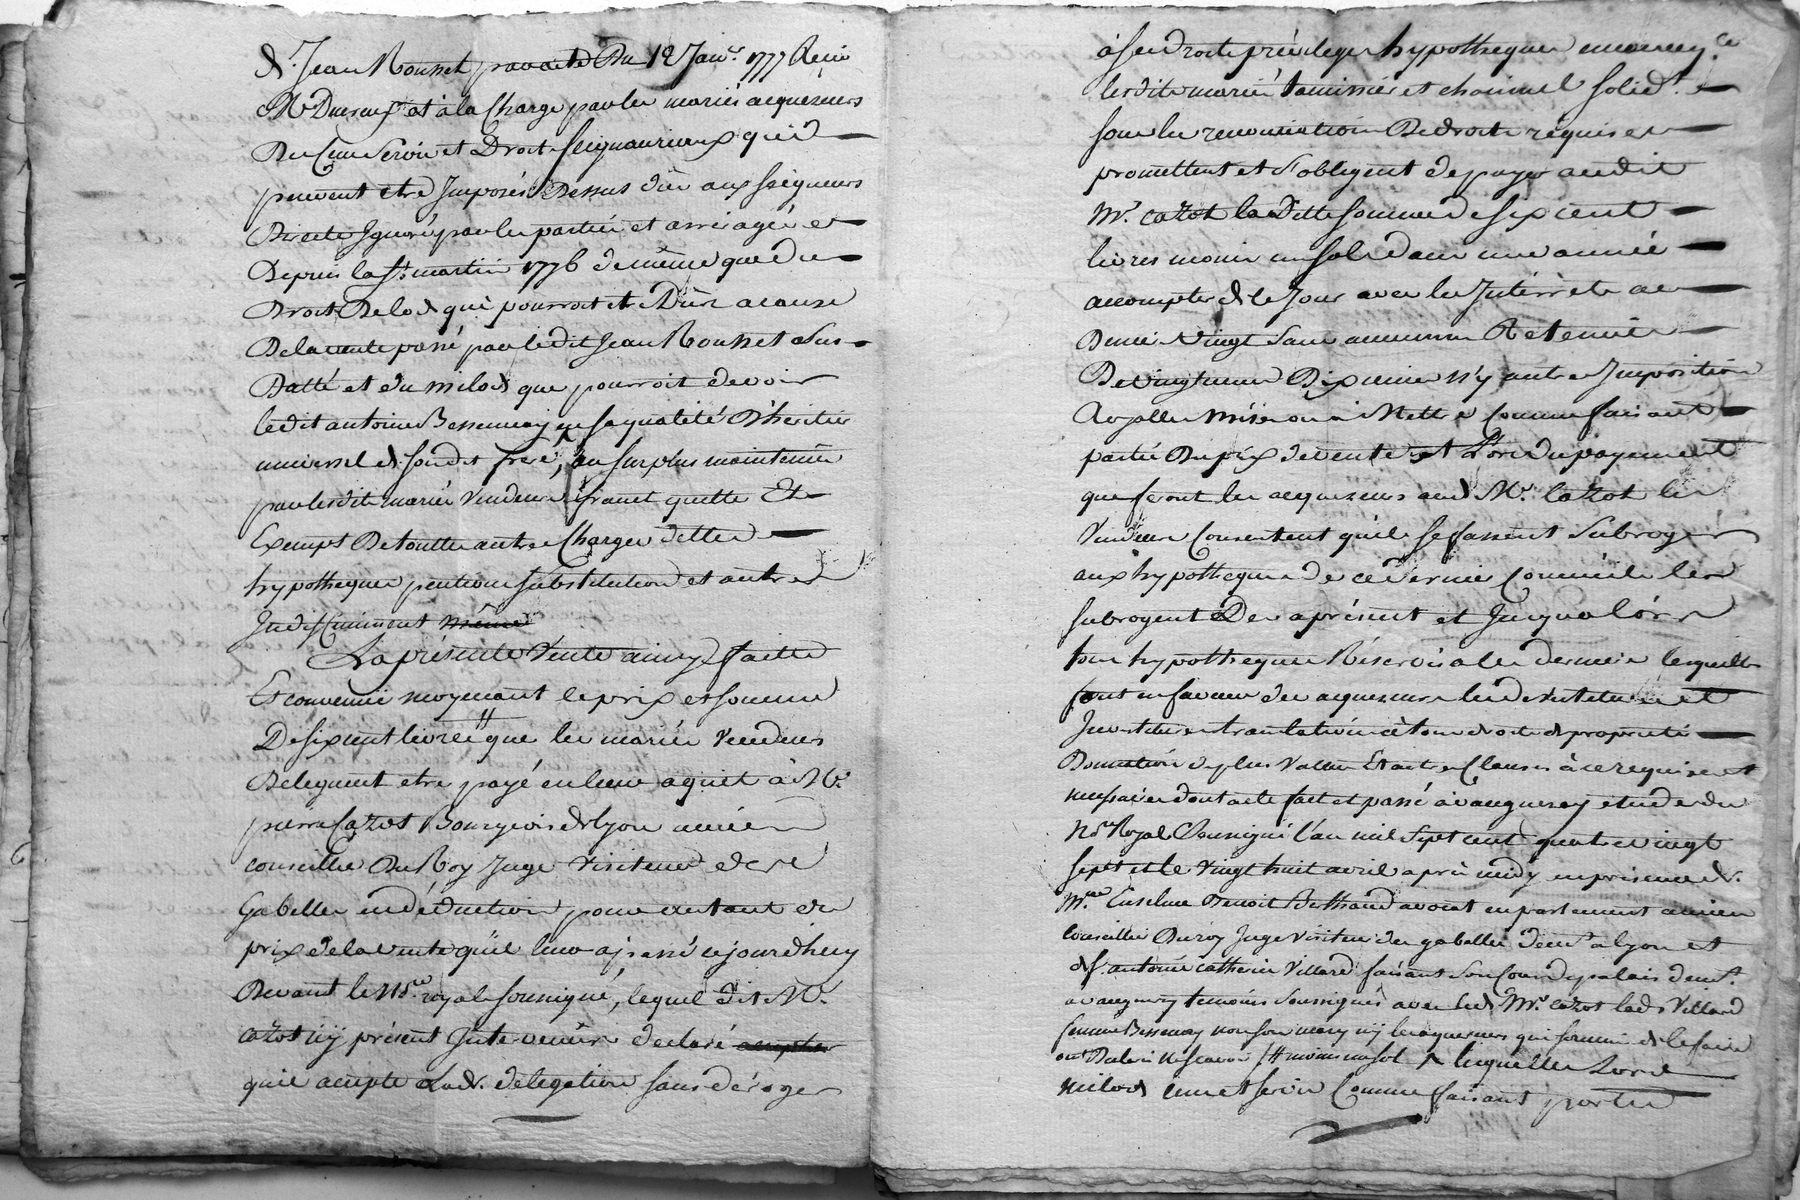 dt. Jean Rousset par acte Du 12 Janr. 1777 Reçu
Me Durieux et à la Charge par les mariés acquereurs
Des Cens Servis et Droits seigneuriaux qui
peuvent etre Imposés Dessus dûs aux seigneurs
Directs Ignorés par les parties et arréragés
Depuis la st. martin 1776 de même que du
Droit De lods qui pourroit etre Dûs acause
De la vente passé par ledit Jean Rousset Sus
Datté et du milods que pourroit devoir
ledit antoine Bessenay en sa qualité D'héritier
universel de son dit frere, au surplus maintenüe
par lesdits mariés Vendeurs franct quitte Et
Exempt De toutte autre Charges dettes
hypotheques pentions substitutions et autres
Indistinctement même
La présente Vente ainsy faitte
Et convenüe moyenant le prix et somme
De six cent livres que les mariés Vendeurs
Deleguent etre payé en leur aquit à Mr.
pierre Cazot Bourgeois de Lyon ancien
conseiller Du Roy Juge Visiteur des
Gabelles en déduction pour autant du
prix de la vente qu'il leur a passé cejourd'huy
Devant le nore. royal soussigné, lequel dit Mr.
cazot icy présent Intervenant déclaré accepter
qu'il accepte Lade. délégation sans déroger
à ses droits privileges hypotheques
lesdits mariés et chainel solidt.
sous les renonciations De droits requises
promettent et s'obligent de payer audit
Mr. cazot la Ditte somme de six cent
livres moins un sol dans une année
acompter de ce Jour avec les Intérrets au
Denier Vingt sans aucunne Retenüe
De Vingtieme Dixieme n'y autres Imposition
Royalles Mise ou à Mettre Comme faisant
partie Du prix de vente et Lors du payement
que feront les acquereurs aud. Mr. Cazot les
Vendeurs Consentent qu'ils se fassent Subroger
aux hypotheques de ce dernier Comme ils les
subrogent Des aprésent et Jusqu'alors
tous hypotheques Réservés a ce dernier lesquelles
sont en faveur des acquereurs les devestitures et
Investitures translation de tous droits de proprieté
Donnation de plus Value Et autres Clauses à ce requises et
necessaires dont acte fait et passé à Vaugneray étude du
nore. Royal Soussigné l'an mil sept cent quatre vingt
sept et le Vingt huit avril après midy en présence de
Me. Enselme Benoit Berthaud avocat en parlement ancien
Conseiller Du roy Juge Visiteur des gabelles demt. a lyon et
de sr. antoine catherin Villard faisant son Cours de palais demt.
a vaugneray temoins Soussignés avec led. Mr. Cazot lade. Villard
femme Bessenay non son mary ny les acquereurs qui sommé de le faire
ont Declaré ne scavoir // moins un sol lesquelles Lods
milods cens et servis Comme faisant partie